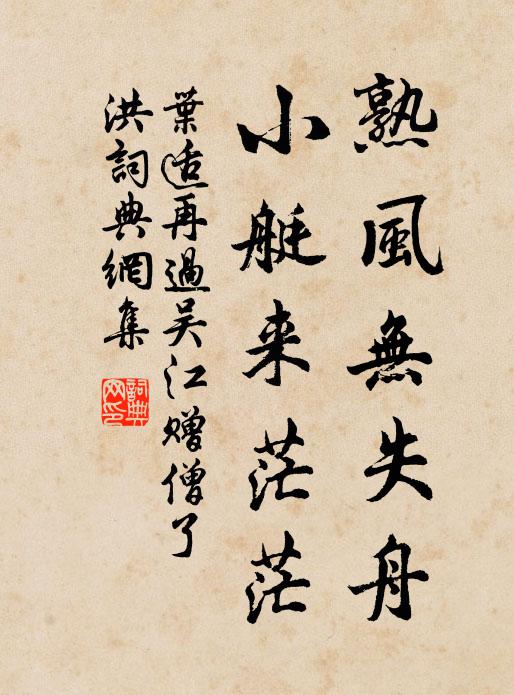 熟風無失舟
小艇来茫茫
葉适再過吴江贈僧了
洪詞典網集
詞典網印